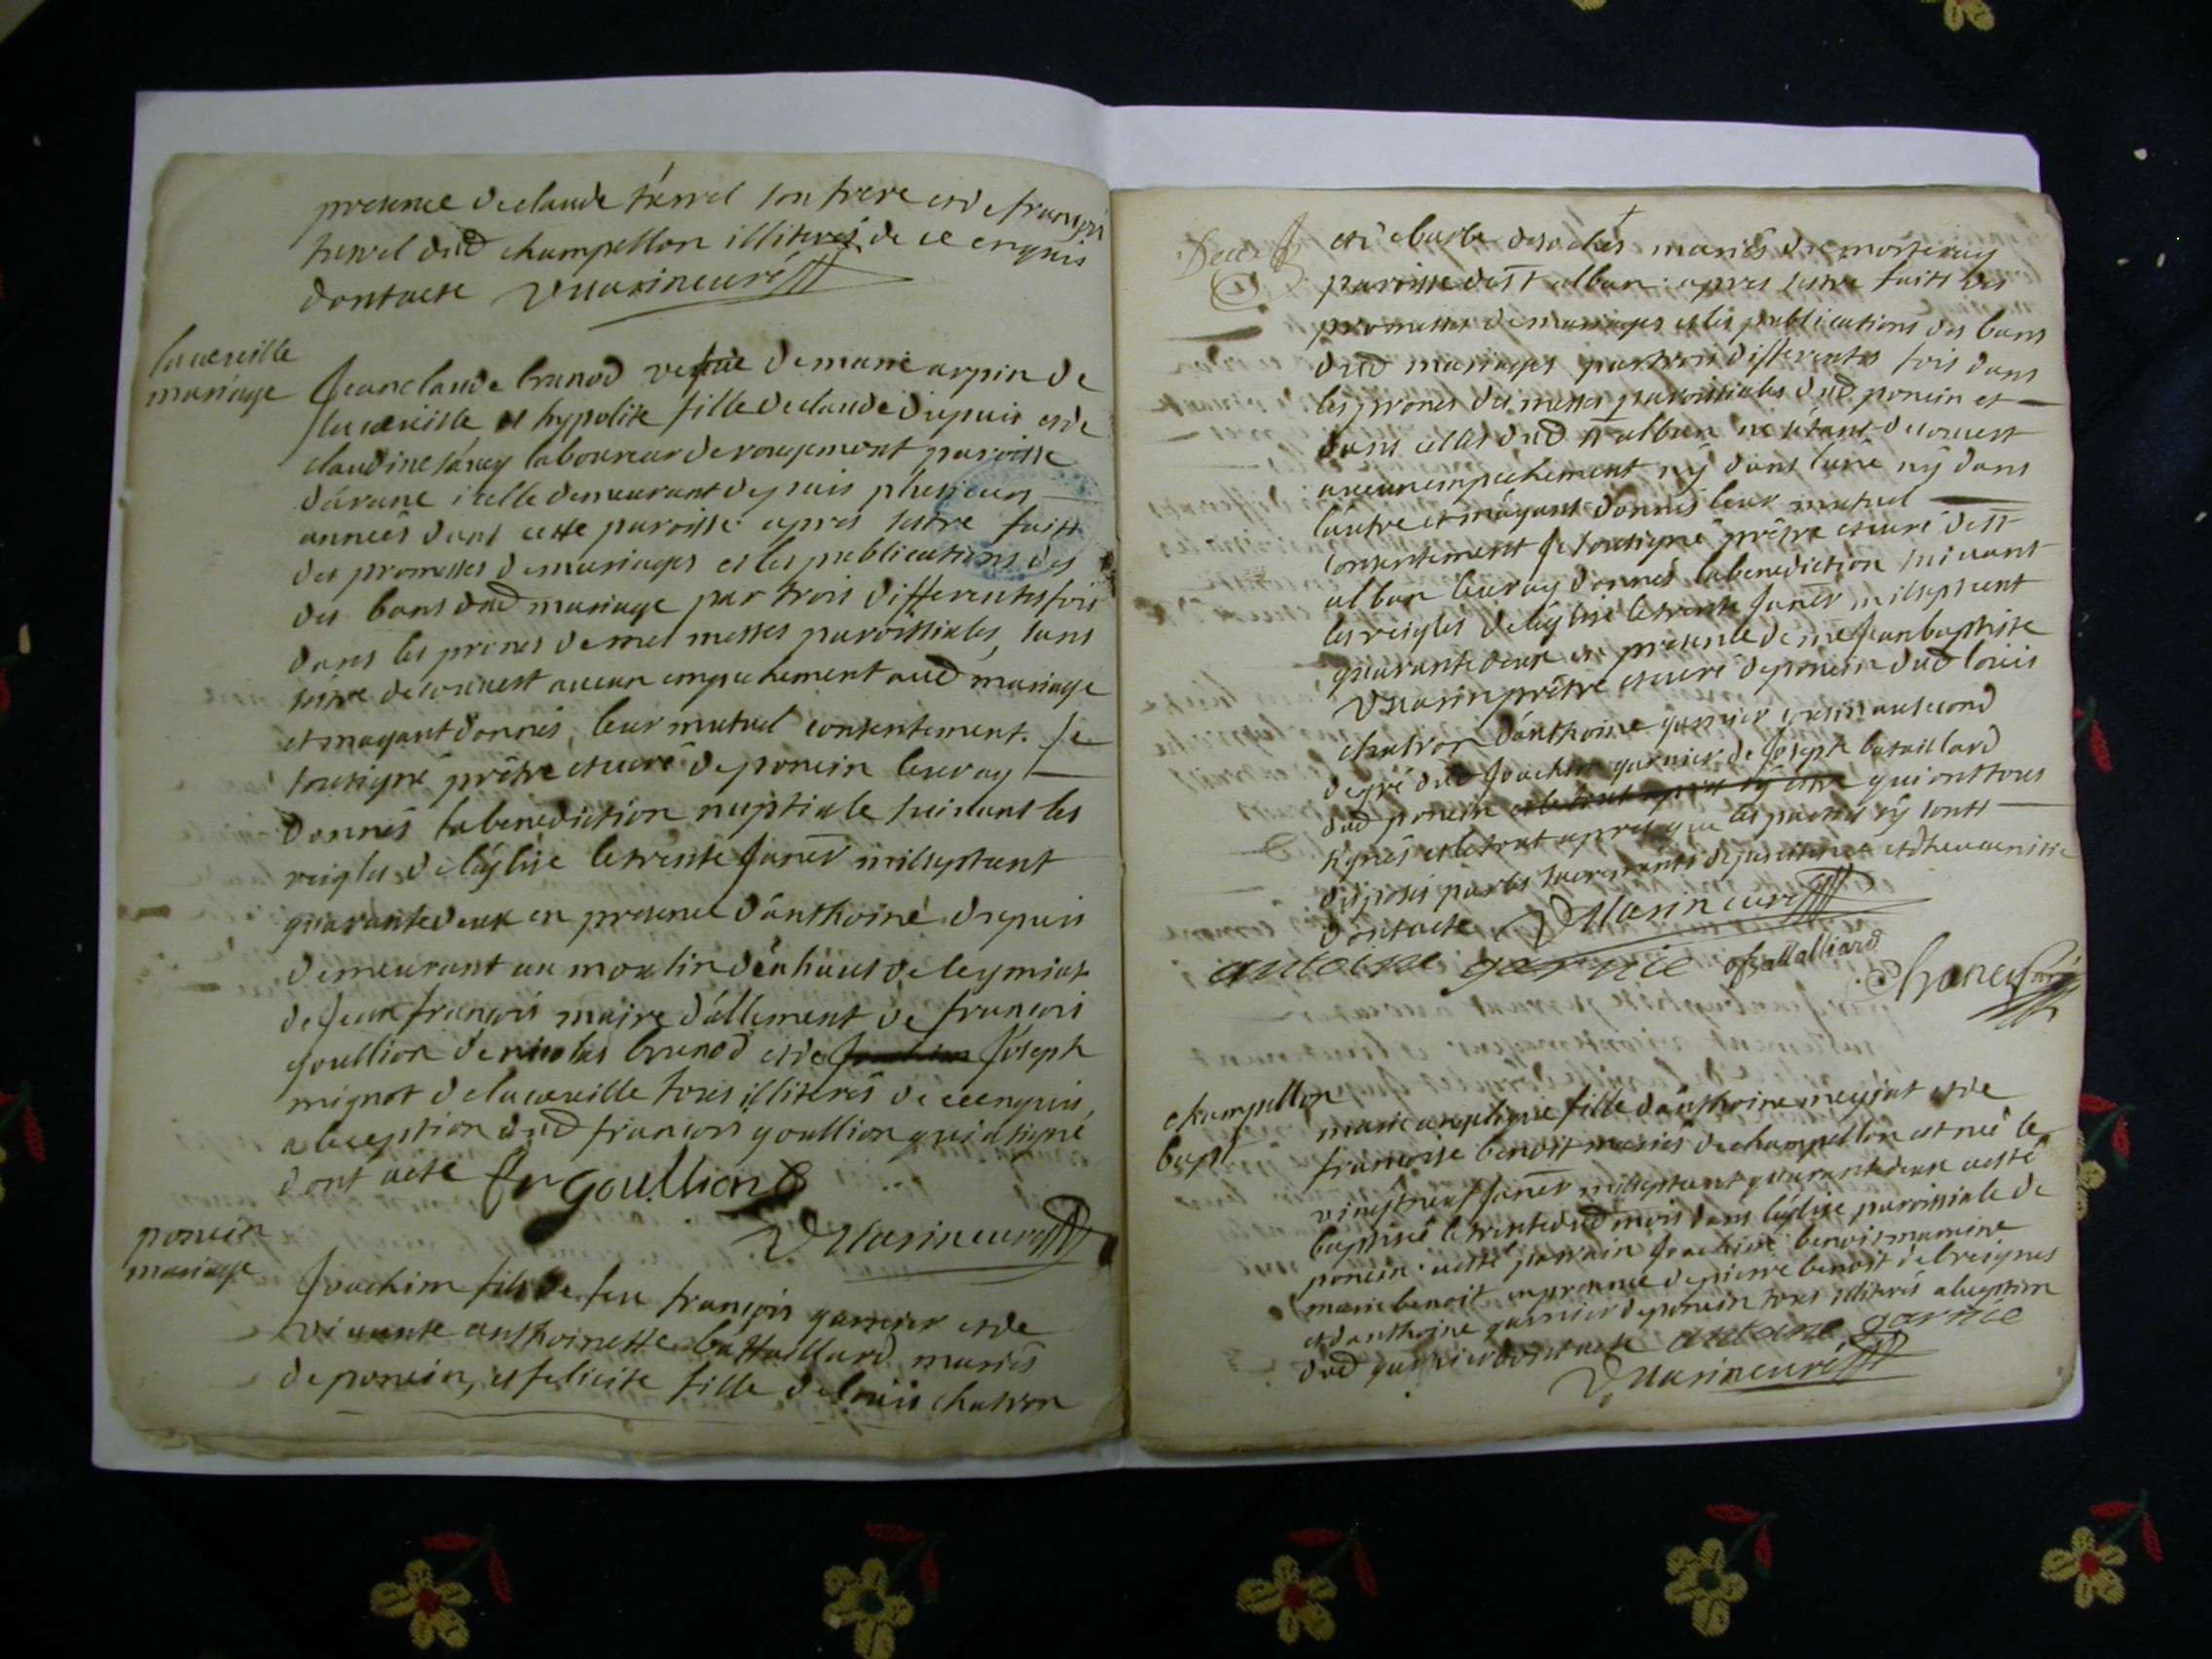 presence de claude terrel son frere et de françois
terrel dud champellon illiterés de ce enquis
dont acte Vuarin curé
la cueille
mariage
Jean claude brunod vefue de marie arpin de
la cueille et hypolite fille de claude dupuis et de
claudine laboureur de rougemont paroisse
d'arane icelle demeurant depuis plusieurs
années dans cette paroisse apres s'estre faits
des promesses de mariages et les publications des
des bans dud mariage par trois differentes fois
dans les prones de mes messes paroissiales, sans
s'être decouuert aucun empechement aud mariage
et m'ayant donnés leur mutuel consentement. Je
soussigné prêtre et curé de poncin leur ay
donnés la benediction nuptiale suiuant les
reigles de l'église le trente janer mil sept cent
quarante deux en presence d'anthoine dupuis
demeurant au moulin d'en haut de leymiat
de Jean françois maire d'allement de francois
goullion de nicolas brunod et de Joseph
mignot de la cueille tous illiterés de ce enquis,
a l'exeption dud francois goullion qui a signé
dont acte fr goullion
Vuarin curé
poncin
mariage
Joachim fils de feu françois garnier et de
viuante anthoinette battaillard mariés
de poncin, et felicite fille de louis chatron
et de barbe desroches mariés de morteray
paroisse de st alban apres s'estre faits des
promesses de mariages et les publications des bans
dud mariages par trois differentes fois dans
les prones des messes paroissiales dud poncin et
dans celles dud st alban ne s'étant decouuert
aucun empechement ny dans l'une ny dans
l'autre et m'ayant donnés leur mutuel
consentement Je soussigné prêtre et curé de st
alban leur ay donnés la benediction suiuant
les reigles de l'église le trente janer mil sept cent
quarante deux en presence de mre Jean baptiste
Vuarin prêtre et curé de poncin dud louis
chatron d'anthoine garnier cousin au second
degré dud Joachim garnier de Joseph bataillard
dud poncin qui ont tous
signés et le tout apres que les parties s'y sont
disposés par les sacrements de penitence et d'heucaristie
dont acte Vuarin curé
antoine garnie Battalliard
champellon
bapt
marie françoise fille d'anthoine meyiat et de
françoise benoit mariés de champellon est née le
vingt neuf janer mil sept cent quarante deux a esté
baptisée le trente dud mois dans l'église paroissiale de
poncin a esté parrain Joachim benoit marraine
marie benoit en presence de pierre benoit de breignes
et d'anthoine garnier de poncin tous illiterés a l'exeption
dud garnier dont acte antoine garnie
Vuarin curé